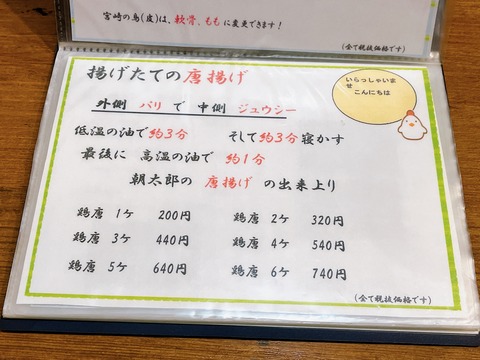 宮崎の鳥(皮)は、軟骨、ももに変更できます!
(全て税抜価格です)
揚げたての唐揚げ
いらっしゃいま
せ
こんにちは
外側 パリ で 中側 ジュウシー
低温の油で約3分 そして約3分寝かす
最後に 高温の油で 約1分
朝太郎の 唐揚げ の出来上り
鶏唐 1ケ 200円 鶏唐 2ケ 320円
鶏唐 3ケ 440円 鶏唐 4ケ 540円
鶏唐 5ケ 640円 鶏唐 6ケ 740円
(全て税抜価格です)